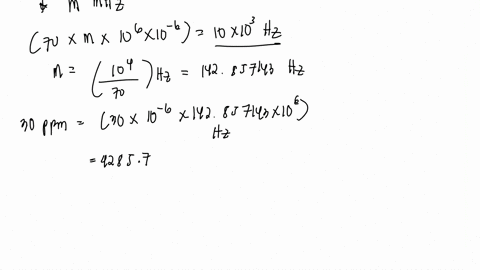 m mHz
(70 × m × 10⁶ × 10⁻⁶) = 10 × 10³ Hz
m = (10⁴/70) Hz = 142.857143 Hz
30 ppm = (30 × 10⁻⁶ × 142.857143 × 10⁶)
Hz
= 4285.7